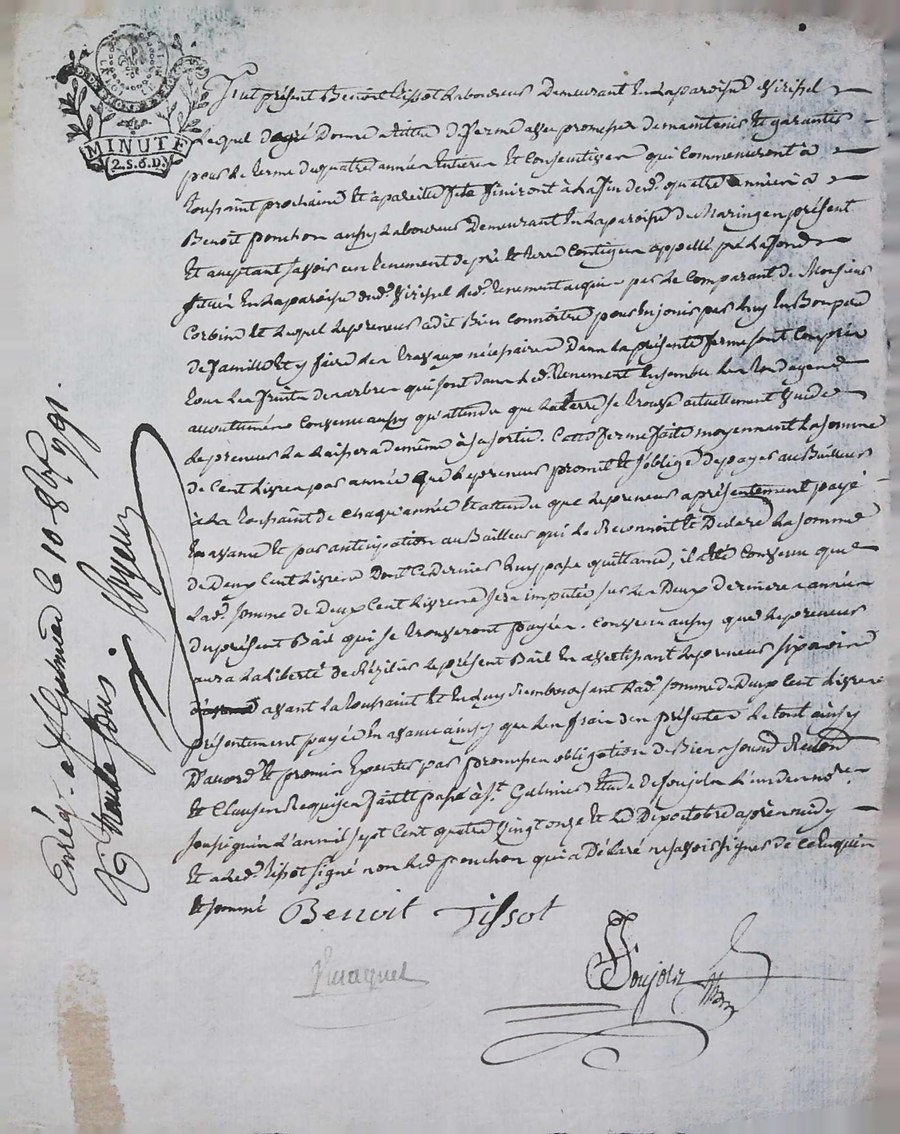 MINUTE
2.S.6.D.
Fut présent Benoit Tissot Laboureur Demeurant En la paroisse de Virisel
Lequel degré Donne a titre de ferme avec promesse de maintenir Et garantir
pour le terme de quatre années Entieres Et Consecutives qui Commenceront a
toussaint prochaine Et a pareille fete finiront a la fin desd. quatre années a
Benoit Ponchon aussy Laboureur Demeurant En la paroisse de Maringes présent
Et acceptant savoir un tenement de pré Et terre Contigus appellé pré Lafond
Situés En la paroisse dud. Virisel led. tenement acquis par le Comparant de Monsieur
Corbin Et lequel le preneur a dit Bien Connaitre pour En jouir par luy En Bon pere
de famille Et y faire les travaux nécessaires Dans la présente ferme sont Compris
tous les fruits des arbres qui sont dans led. tenement Ensemble les
accoutumés Convenu aussy qu'attendu que la terre se trouve actuellement vuide
le preneur la laissera de meme a sa sortie. Cette ferme faite moyennant la somme
de Cent Livres par année que le preneur promet Et s'oblige de payer au Bailleur
a la toussaint de chaque année Et attendu que le preneur a présentement payé
En avance Et par anticipation au Bailleur qui le Reconnoit Et Declare la somme
de Deux Cent Livres Dont Ce dernier luy passe quittance, il a été Convenu que
lad. somme de deux Cent livres sera imputée sur les Deux dernieres années
du présent Bail qui se trouveront payées. Convenu aussy que le preneur
aura la liberté de Résilier le présent Bail En avertissant le preneur
avant la toussaint Et En luy Remboursant lad. somme de Deux Cent livres
présentement payée En avance ainsy que les frais des présentes le tout ainsy
D'accord Et promis Executer par promesses obligation de Biens soumd. Renond.
Et Clauses Requises fait Et passé a St. Galmier Etude de Soujols L'un des nores.
soussignés L'an mil sept Cent quatre vingt onze Et le Dix octobre apres midy
Et a led. Tissot signé non led. Ponchon qui a Déclaré ne savoir signer de Ce Enquis
Et sommé Benoit Tissot
Soujols
Enrég. a St Galmier le 10 8bre 1791.
R trente sous.